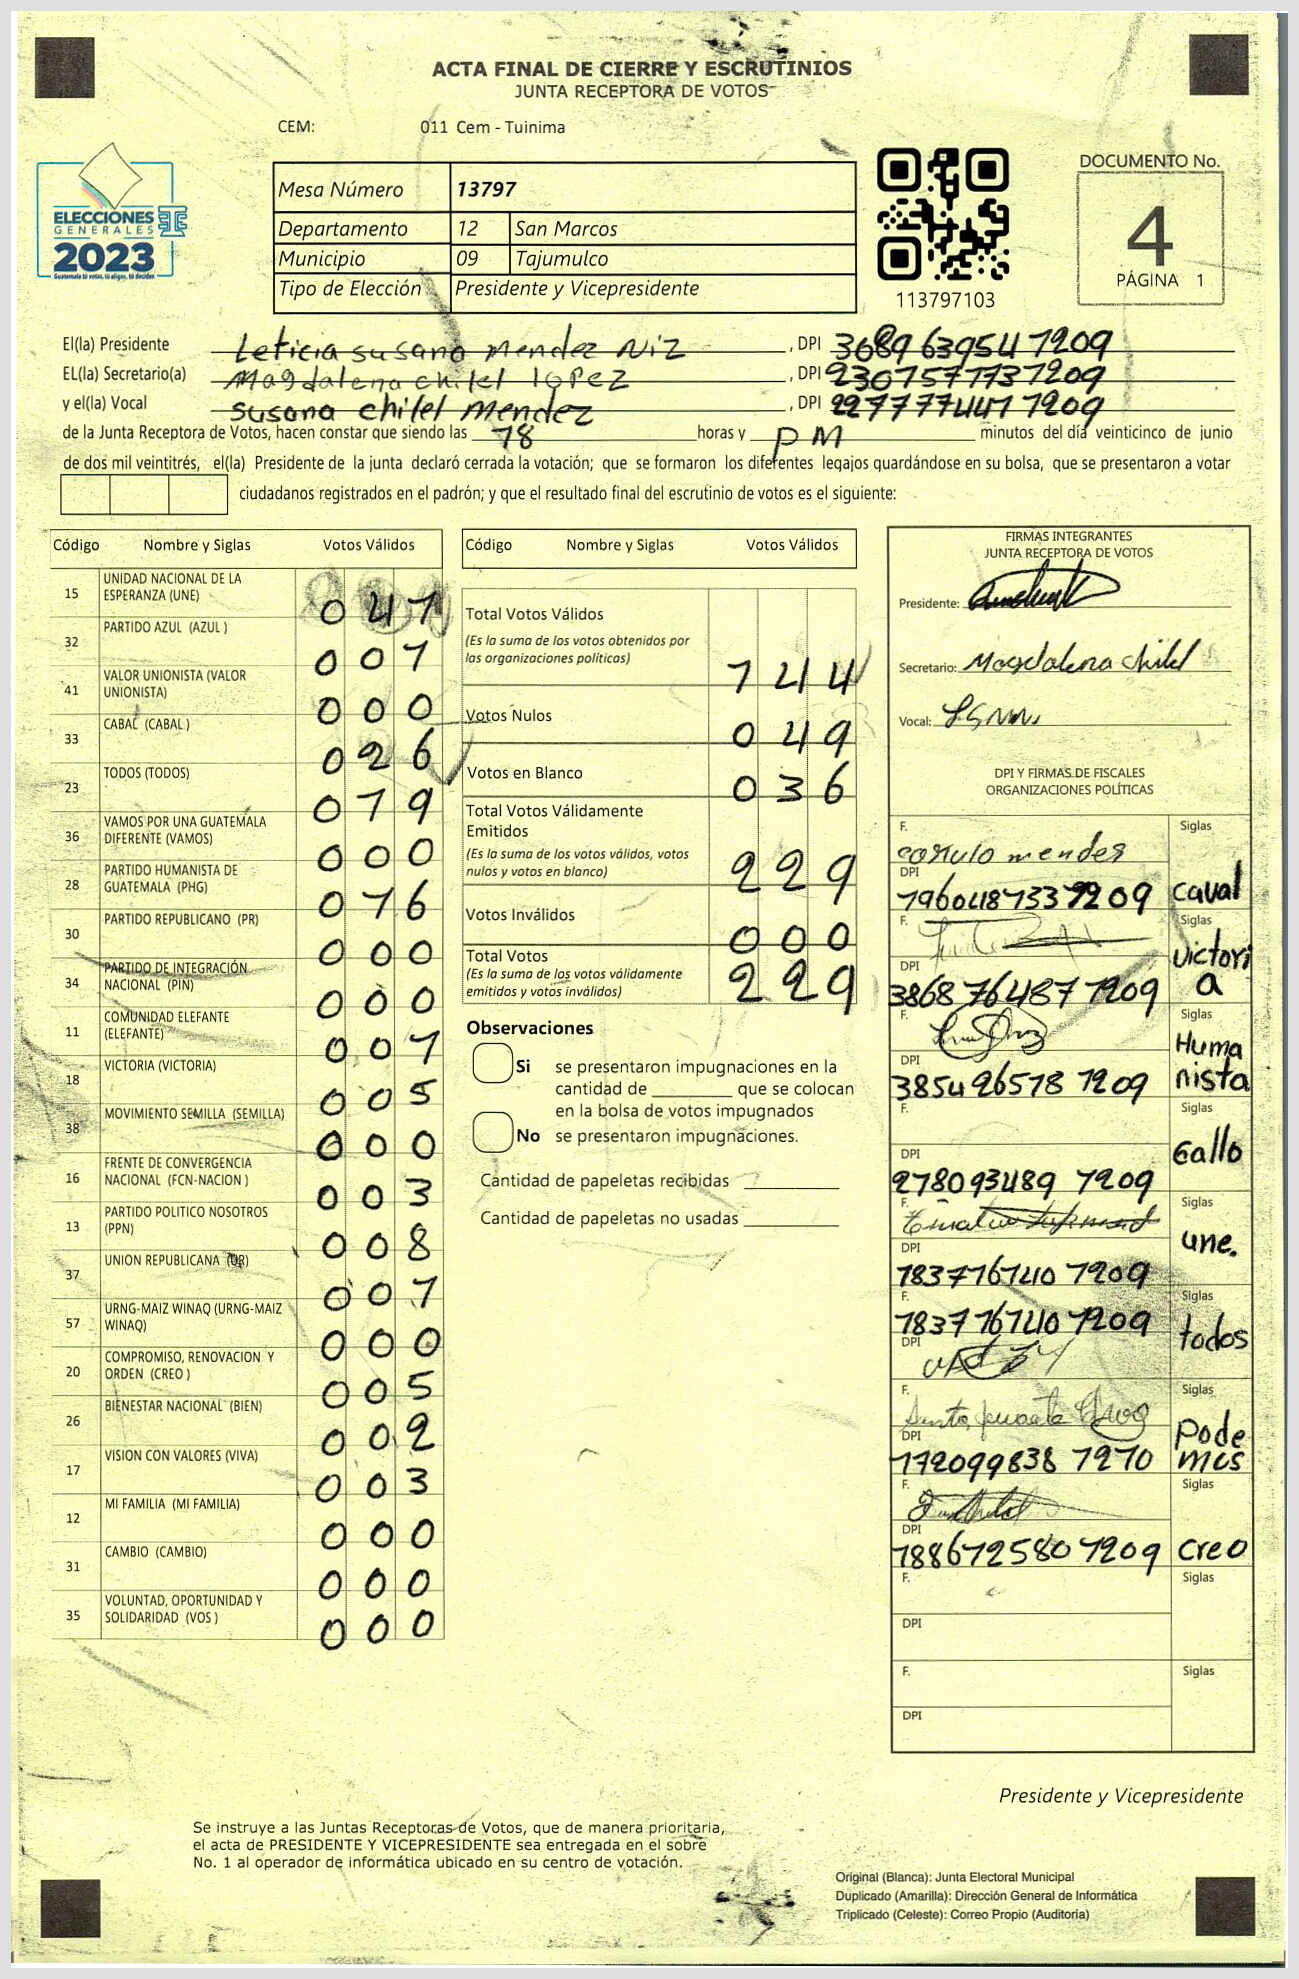 ACTA FINAL DE CIERRE Y ESCRUTINIOS
JUNTA RECEPTORA DE VOTOS
CEM: 011 Cem - Tuinima
ELECCIONES
GENERALES
2023
Guatemala tú votas, tú eliges, tú decides
Mesa Número 13797
Departamento 12 San Marcos
Municipio 09 Tajumulco
Tipo de Elección Presidente y Vicepresidente
113797103
DOCUMENTO No.
4
PÁGINA 1
El(la) Presidente Leticia susana mendez Niz, DPI 3689639547209
EL(la) Secretario(a) Magdalena chilel lopez, DPI
y el(la) Vocal susana chilel mendez, DPI
de la Junta Receptora de Votos, hacen constar que siendo las 18 horas y PM minutos del día veinticinco de junio
de dos mil veintitrés, el(la) Presidente de la junta declaró cerrada la votación; que se formaron los diferentes legajos guardándose en su bolsa, que se presentaron a votar
ciudadanos registrados en el padrón; y que el resultado final del escrutinio de votos es el siguiente:
Código Nombre y Siglas Votos Válidos
15 UNIDAD NACIONAL DE LA ESPERANZA (UNE) 047
32 PARTIDO AZUL (AZUL ) 001
41 VALOR UNIONISTA (VALOR UNIONISTA) 000
33 CABAL (CABAL ) 026
23 TODOS (TODOS) 019
36 VAMOS POR UNA GUATEMALA DIFERENTE (VAMOS) 000
28 PARTIDO HUMANISTA DE GUATEMALA (PHG) 016
30 PARTIDO REPUBLICANO (PR) 000
34 PARTIDO DE INTEGRACIÓN NACIONAL (PIN) 000
11 COMUNIDAD ELEFANTE (ELEFANTE) 001
18 VICTORIA (VICTORIA) 005
38 MOVIMIENTO SEMILLA (SEMILLA) 000
16 FRENTE DE CONVERGENCIA NACIONAL (FCN-NACION ) 003
13 PARTIDO POLITICO NOSOTROS (PPN) 008
37 UNION REPUBLICANA (UR) 001
57 URNG-MAIZ WINAQ (URNG-MAIZ WINAQ) 000
20 COMPROMISO, RENOVACION Y ORDEN (CREO ) 005
26 BIENESTAR NACIONAL (BIEN) 002
17 VISION CON VALORES (VIVA) 003
12 MI FAMILIA (MI FAMILIA) 000
31 CAMBIO (CAMBIO) 000
35 VOLUNTAD, OPORTUNIDAD Y SOLIDARIDAD (VOS ) 000
Código Nombre y Siglas Votos Válidos
Total Votos Válidos 144
(Es la suma de los votos obtenidos por
las organizaciones políticas)
Votos Nulos 049
Votos en Blanco 036
Total Votos Válidamente
Emitidos
(Es la suma de los votos válidos, votos
nulos y votos en blanco) 229
Votos Inválidos 000
Total Votos 229
(Es la suma de los votos válidamente
emitidos y votos inválidos)
Observaciones
Si se presentaron impugnaciones en la
cantidad de ________ que se colocan
en la bolsa de votos impugnados
No se presentaron impugnaciones.
Cantidad de papeletas recibidas
Cantidad de papeletas no usadas
FIRMAS INTEGRANTES
JUNTA RECEPTORA DE VOTOS
Presidente:
Secretario: Magdalena chilel
Vocal:
DPI Y FIRMAS DE FISCALES
ORGANIZACIONES POLÍTICAS
F. mendes Siglas
DPI caval
F. Siglas
DPI 3868764871209 victoria
F. Siglas
DPI 3854265781209 Humanista
F. Siglas
DPI 2780934891209 Gallo
F. Siglas
DPI 1837767401209 une.
F. 1837767401209 Siglas
DPI todos
F. Siglas
DPI 1720998381210 Podemos
F. Siglas
DPI 1886725801209 creo
F. Siglas
DPI
F. Siglas
DPI
Presidente y Vicepresidente
Se instruye a las Juntas Receptoras de Votos, que de manera prioritaria,
el acta de PRESIDENTE Y VICEPRESIDENTE sea entregada en el sobre
No. 1 al operador de informática ubicado en su centro de votación.
Original (Blanca): Junta Electoral Municipal
Duplicado (Amarilla): Dirección General de Informática
Triplicado (Celeste): Correo Propio (Auditoria)